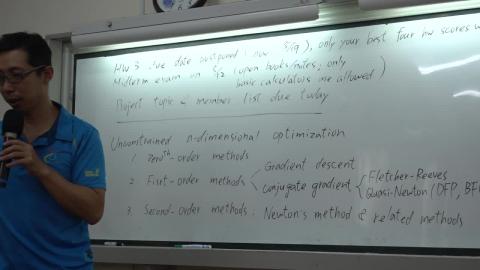 HW 3 due date postponed (now 5/19), only your best four hw scores w
Midterm exam on 5/12 (open books/notes; only
basic calculators are allowed)
Project topic & member list due today
Unconstrained n-dimensional optimization
1. Zeroth-order methods
2. First-order methods
Gradient descent
Conjugate gradient
Fletcher-Reeves
Quasi-Newton (DFP, BF
3. Second-order methods: Newton's method & related methods